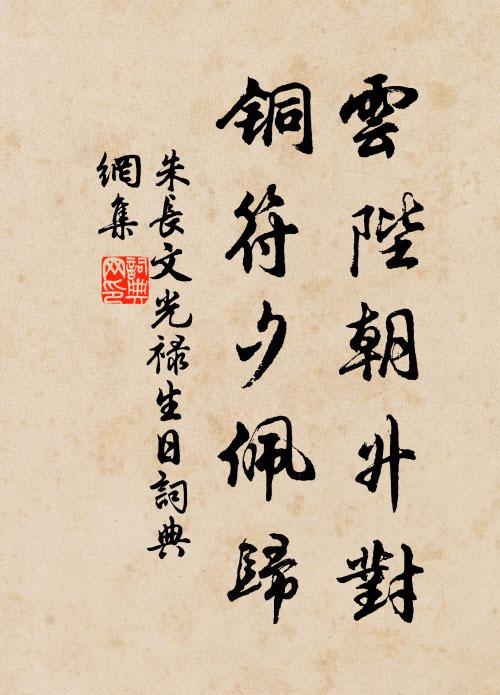 雲陛朝升對
铜符夕佩歸
朱長文光禄生日詞典
網集
詞典網印